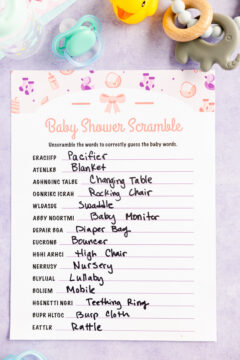 Baby Shower Scramble
Unscramble the words to correctly guess the baby words.
ERACIIFP Pacifier
ATENLKB Blanket
AGHNGING TALBE Changing Table
OGNRIKC IRCAH Rocking Chair
WLDASDE Swaddle
ABBY NOORTMI Baby Monitor
DEPAIR BGA Diaper Bag
EUCRONB Bouncer
HGHI ARHCI High Chair
NERRUSY Nursery
BLYLUAL Lullaby
BOLIEM Mobile
HGENETTI NGRI Teething Ring
BUPR HLTOC Burp Cloth
EATTLR Rattle